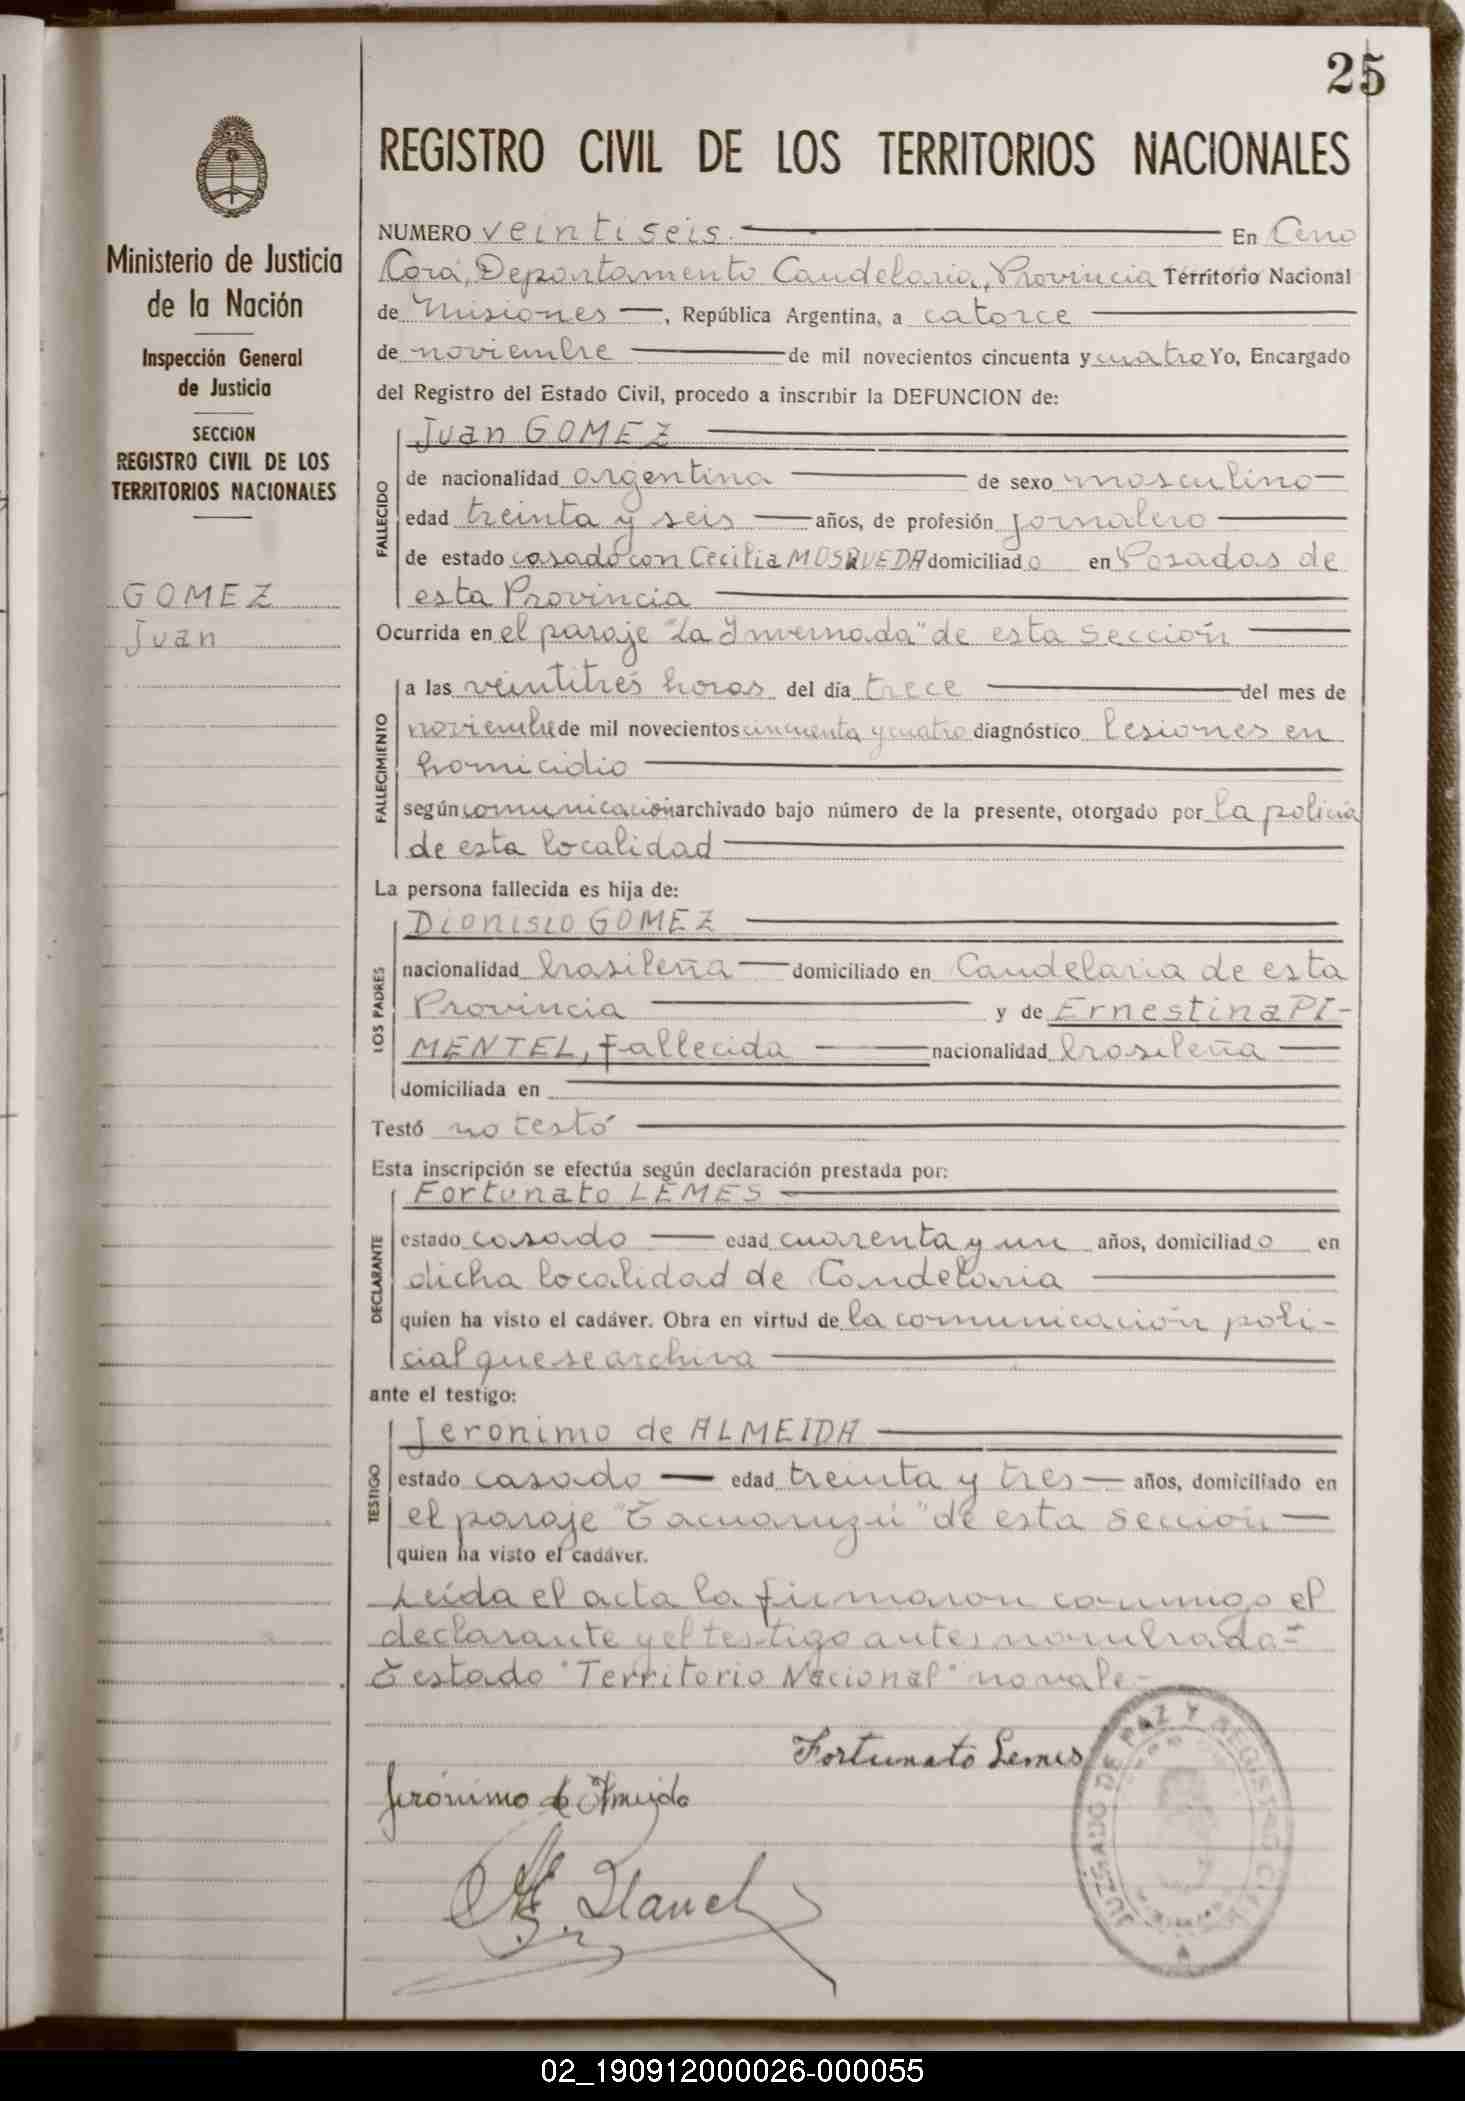 25
REGISTRO CIVIL DE LOS TERRITORIOS NACIONALES
Ministerio de Justicia
de la Nación
Inspección General
de Justicia
SECCION
REGISTRO CIVIL DE LOS
TERRITORIOS NACIONALES
GOMEZ
Juan
NUMERO veintiseis. En Cerro
Corá, Departamento Candelaria, Provincia Territorio Nacional
de Misiones, República Argentina, a catorce
de noviembre de mil novecientos cincuenta y cuatro Yo, Encargado
del Registro del Estado Civil, procedo a inscribir la DEFUNCION de:
Juan GOMEZ
FALLECIDO
de nacionalidad argentina de sexo masculino
edad treinta y seis años, de profesión jornalero
de estado casado con Cecilia MOSQUEDA domiciliado en Posadas de
esta Provincia
Ocurrida en el paraje "La Invernada" de esta sección
FALLECIMIENTO
a las veintitrés horas del día trece del mes de
noviembre de mil novecientos cincuenta y cuatro diagnóstico lesiones en
homicidio
según comunicación archivado bajo número de la presente, otorgado por la policía
de esta localidad
La persona fallecida es hija de:
LOS PADRES
Dionisio GOMEZ
nacionalidad brasileña domiciliado en Candelaria de esta
Provincia y de Ernestina PI-
MENTEL, fallecida nacionalidad brasileña
domiciliada en
Testó no testó
Esta inscripción se efectúa según declaración prestada por:
DECLARANTE
Fortunato LEMES
estado casado edad cuarenta y un años, domiciliado en
dicha localidad de Candelaria
quien ha visto el cadáver. Obra en virtud de la comunicación poli-
cial que se archiva
ante el testigo:
TESTIGO
Jeronimo de ALMEIDA
estado casado edad treinta y tres años, domiciliado en
el paraje "Tacuaruzú" de esta sección
quien ha visto el cadáver.
Leída el acta la firmaron conmigo el
declarante y el testigo antes nombrado=
Testado "Territorio Nacional" no vale-
Fortunato Lemes
Jerónimo de Almeida
JUZGADO DE PAZ Y REGISTRO CIVIL
02_190912000026-000055